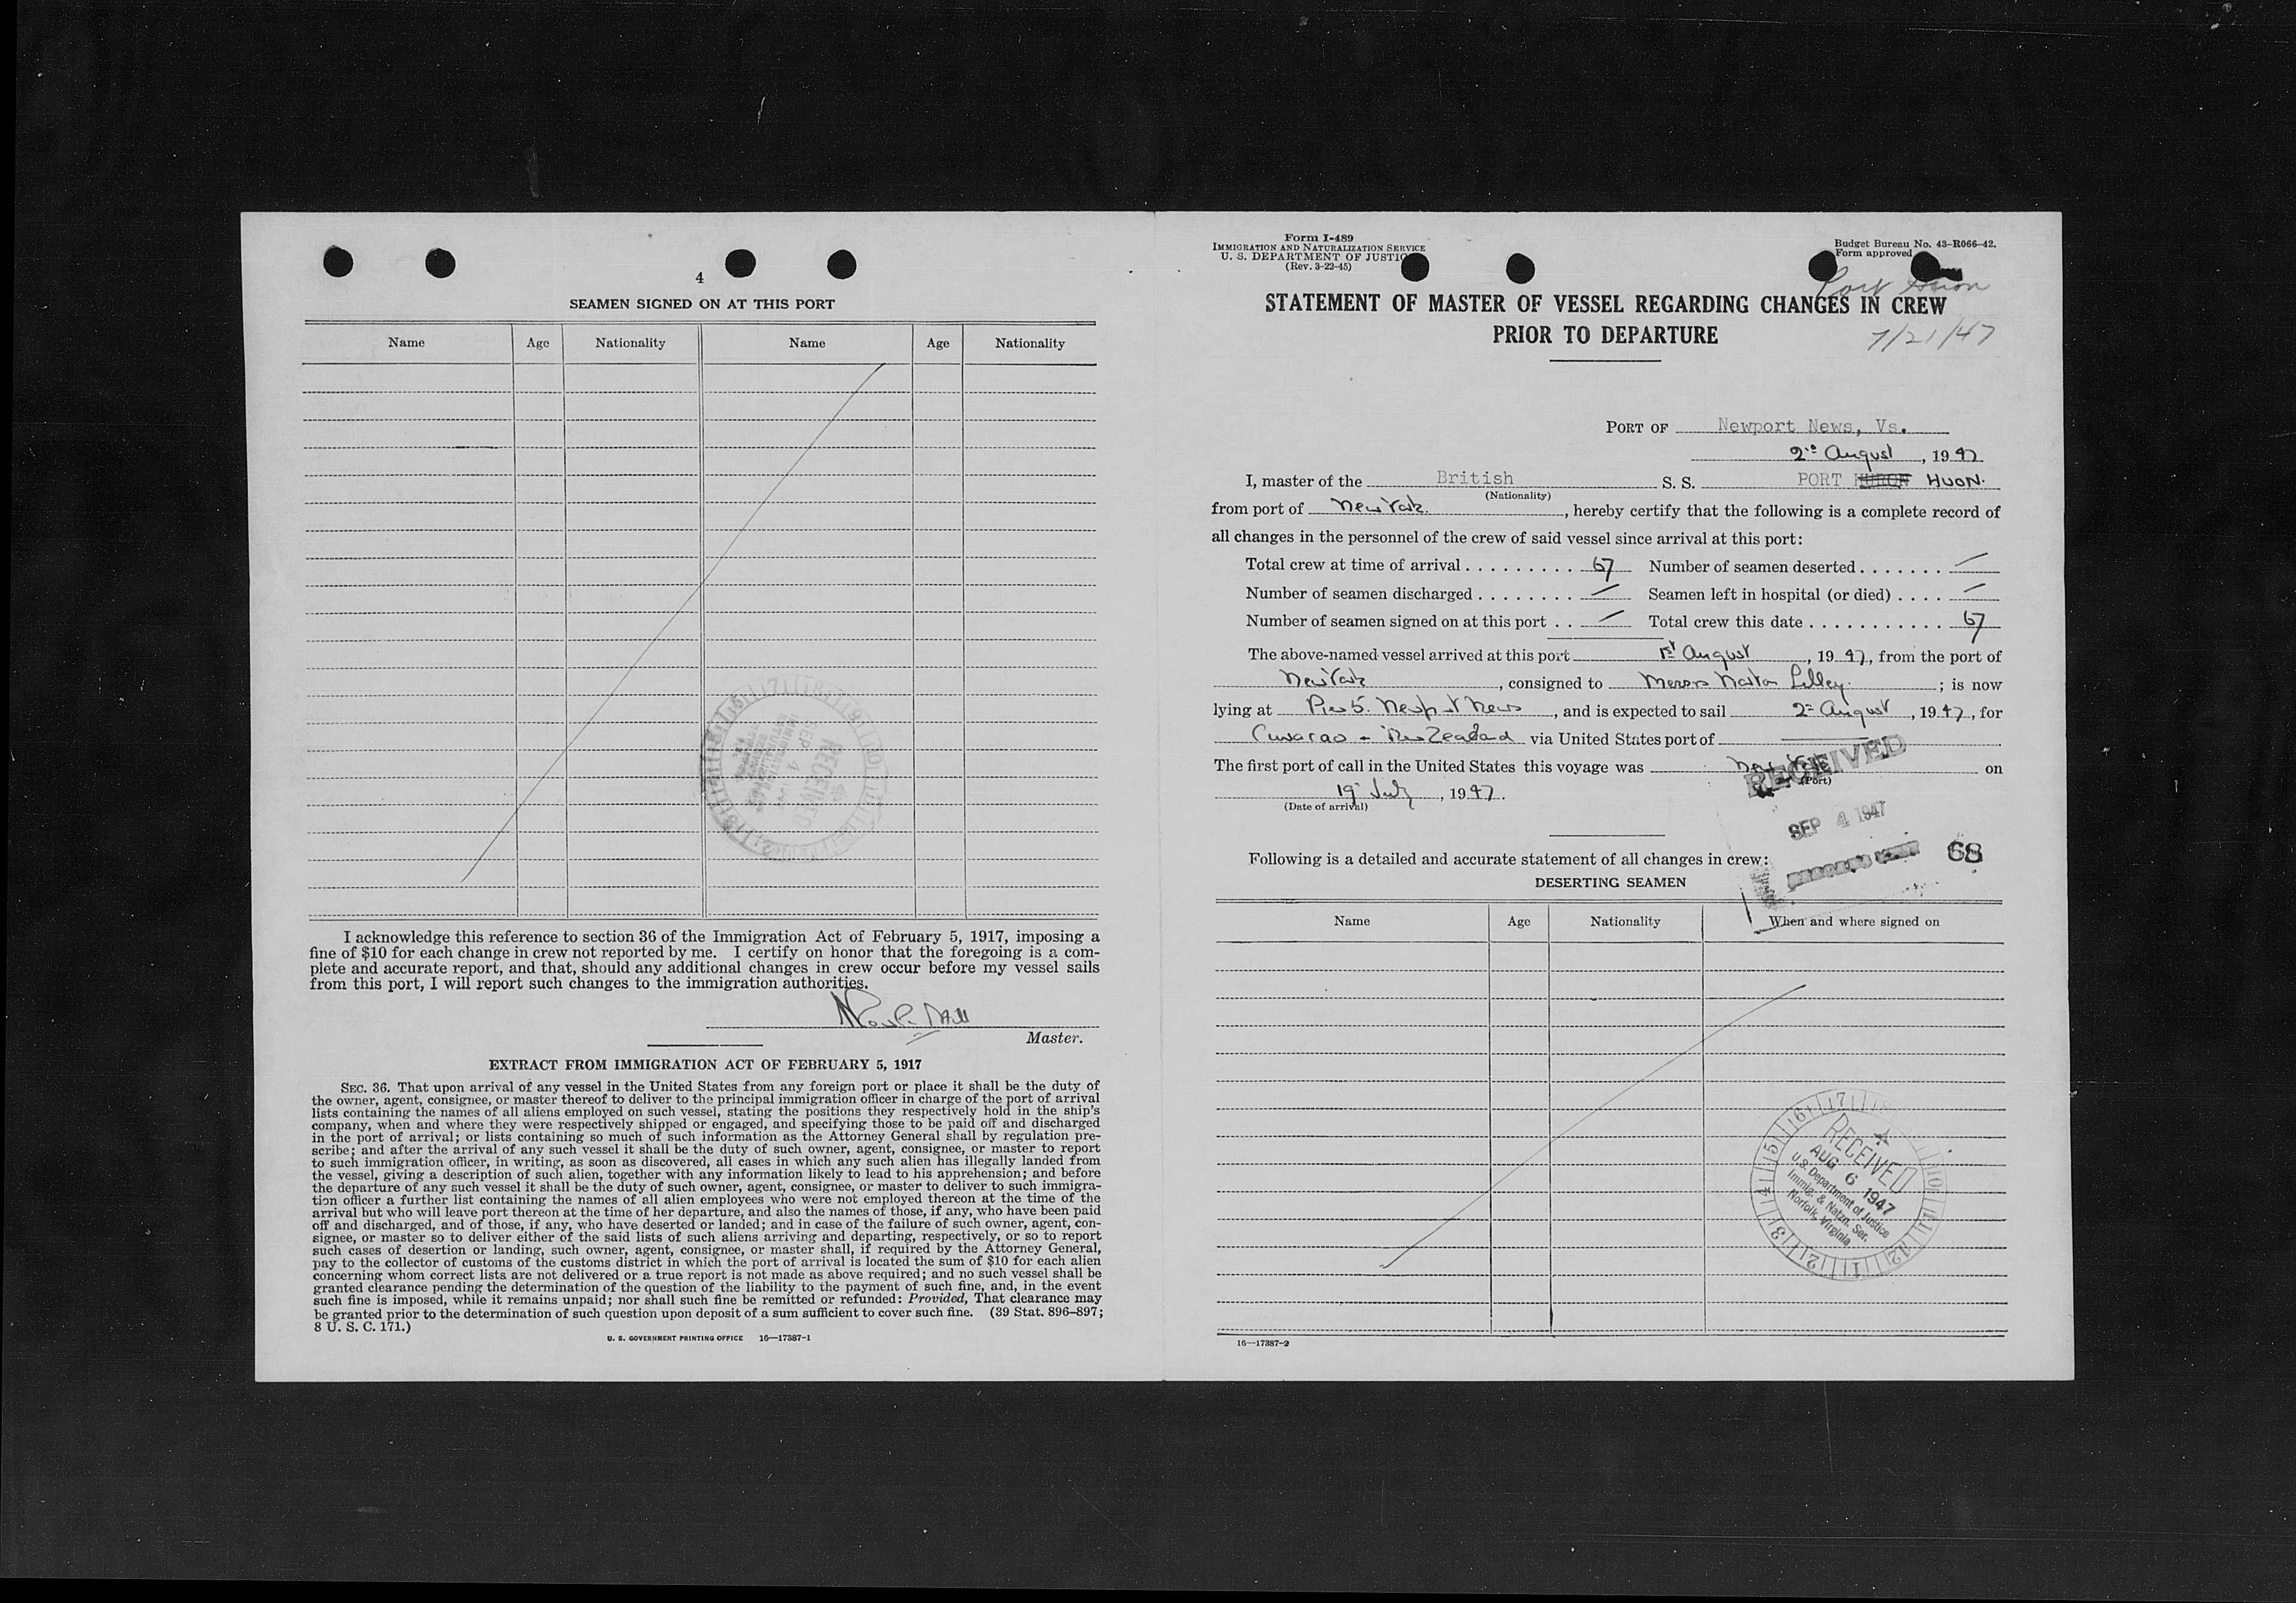 4
SEAMEN SIGNED ON AT THIS PORT
Name Age Nationality Name Age Nationality
I acknowledge this reference to section 36 of the Immigration Act of February 5, 1917, imposing a
fine of $10 for each change in crew not reported by me. I certify on honor that the foregoing is a com-
plete and accurate report, and that, should any additional changes in crew occur before my vessel sails
from this port, I will report such changes to the immigration authorities.
Master.
EXTRACT FROM IMMIGRATION ACT OF FEBRUARY 5, 1917
SEC. 36. That upon arrival of any vessel in the United States from any foreign port or place it shall be the duty of
the owner, agent, consignee, or master thereof to deliver to the principal immigration officer in charge of the port of arrival
lists containing the names of all aliens employed on such vessel, stating the positions they respectively hold in the ship's
company, when and where they were respectively shipped or engaged, and specifying those to be paid off and discharged
in the port of arrival; or lists containing so much of such information as the Attorney General shall by regulation pre-
scribe; and after the arrival of any such vessel it shall be the duty of such owner, agent, consignee, or master to report
to such immigration officer, in writing, as soon as discovered, all cases in which any such alien has illegally landed from
the vessel, giving a description of such alien, together with any information likely to lead to his apprehension; and before
the departure of any such vessel it shall be the duty of such owner, agent, consignee, or master to deliver to such immigra-
tion officer a further list containing the names of all alien employees who were not employed thereon at the time of the
arrival but who will leave port thereon at the time of her departure, and also the names of those, if any, who have been paid
off and discharged, and of those, if any, who have deserted or landed; and in case of the failure of such owner, agent, con-
signee, or master so to deliver either of the said lists of such aliens arriving and departing, respectively, or so to report
such cases of desertion or landing, such owner, agent, consignee, or master shall, if required by the Attorney General,
pay to the collector of customs of the customs district in which the port of arrival is located the sum of $10 for each alien
concerning whom correct lists are not delivered or a true report is not made as above required; and no such vessel shall be
granted clearance pending the determination of the question of the liability to the payment of such fine, and, in the event
such fine is imposed, while it remains unpaid; nor shall such fine be remitted or refunded: Provided, That clearance may
be granted prior to the determination of such question upon deposit of a sum sufficient to cover such fine. (39 Stat. 896–897;
8 U. S. C. 171.)
U. S. GOVERNMENT PRINTING OFFICE 16—17387-1
Form I-489
IMMIGRATION AND NATURALIZATION SERVICE
U. S. DEPARTMENT OF JUSTIC
(Rev. 3-22-45)
Budget Bureau No. 43-R066-42.
Form approved
Port Huon
STATEMENT OF MASTER OF VESSEL REGARDING CHANGES IN CREW
PRIOR TO DEPARTURE
7/21/47
PORT OF Newport News, Vs.
2nd August, 1947
I, master of the British S. S. PORT HUON.
(Nationality)
from port of New York., hereby certify that the following is a complete record of
all changes in the personnel of the crew of said vessel since arrival at this port:
Total crew at time of arrival . . . . . . . . . . 67 Number of seamen deserted . . . . . . . —
Number of seamen discharged . . . . . . . . — Seamen left in hospital (or died) . . . . —
Number of seamen signed on at this port . . — Total crew this date . . . . . . . . . . . 67
The above-named vessel arrived at this port 1st August, 1947, from the port of
New York, consigned to Messrs Norton Lilley.; is now
lying at Pier 5. Newport News, and is expected to sail 2nd August, 1947, for
Curacao - New Zealand via United States port of
The first port of call in the United States this voyage was New York on
(Port)
19 July, 1947.
(Date of arrival)
RECEIVED
SEP 4 1947
68
Following is a detailed and accurate statement of all changes in crew:
DESERTING SEAMEN
Name Age Nationality When and where signed on
RECEIVED
AUG 6 1947
U.S. Department of Justice
Immig. & Natzn. Ser.
Norfolk, Virginia
16—17387-2